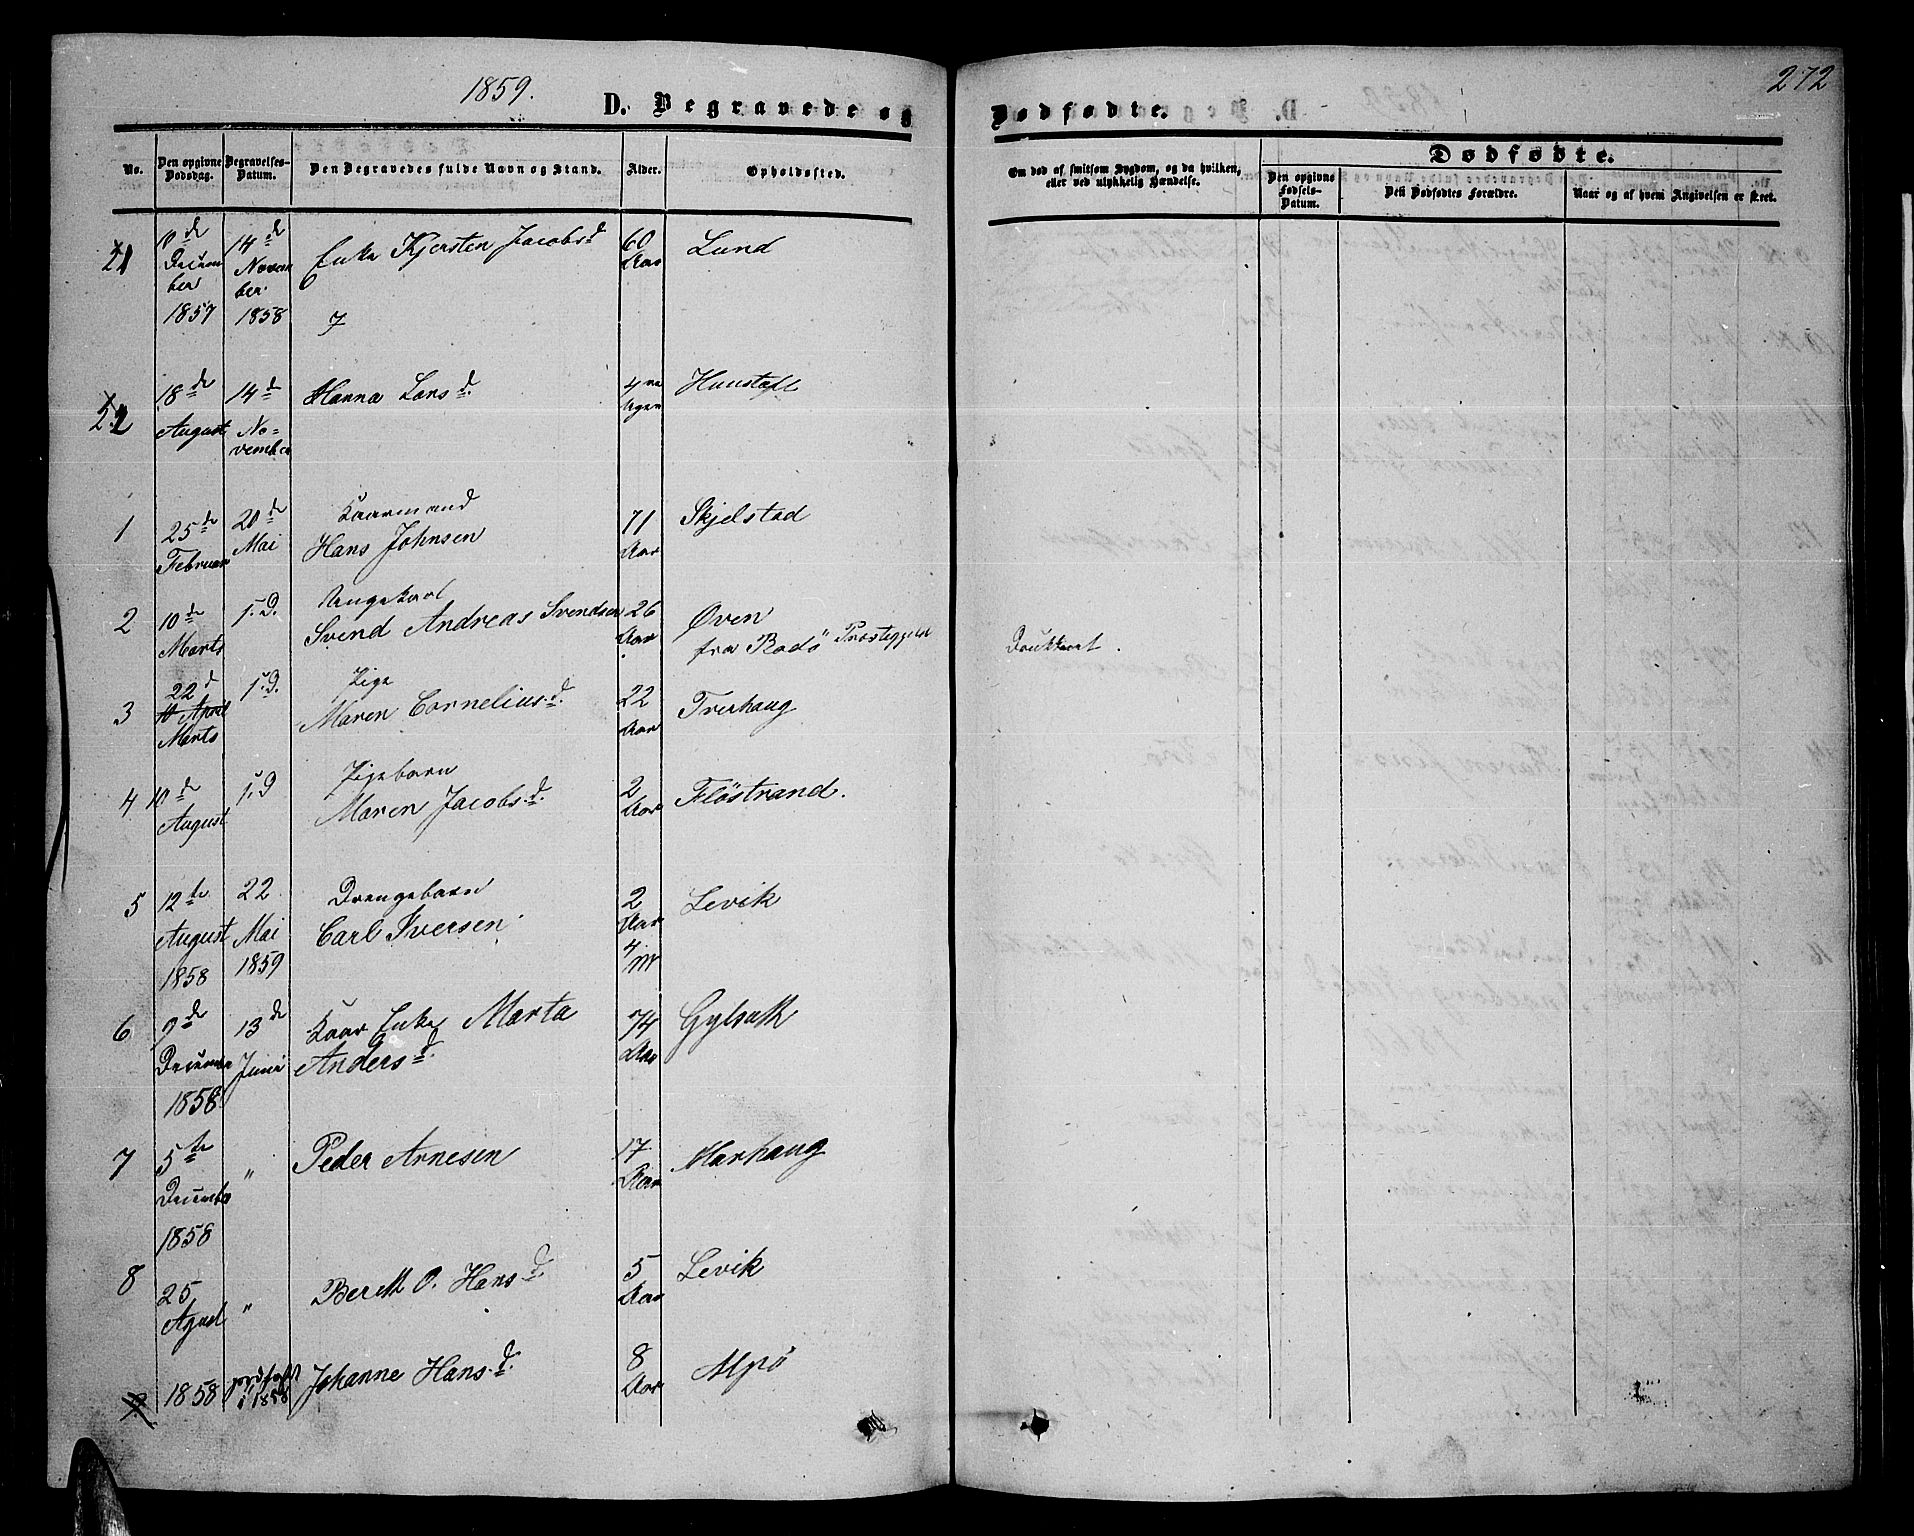 1859.
272
D. Begravede og Dødfødte.
No.
Den opgivne Dødsdag.
Begravelses-Datum.
Den Begravedes fulde Navn og Stand.
Alder.
Opholdssted.
Om død af smitsom Sygdom, og da hvilken, eller ved ulykkelig Hændelse.
Dødfødte.
Den opgivne Fødsels-Datum.
Det Dødfødtes Forældre.
Naar og af hvem Angivelsen er skeet.
21 8de December 1857 14de November 1858 Enke Kjersten Jacobsd 60 Aar Lund
22 18de August 14d November Hanna Larsd. 4re Uger
1 25de Februar 20de Mai Kaarmand Hans Johnsen 71 Aar Skjelstad
2 10de Marts s. D. Ungekarl Svend Andreas Svendsen 26 Aar Øven fra Rødö Præstegjeld Drukknet.
3 22d Marts s. D. Pige Maren Corneliusd. 22 Aar Tverhaug
4 10de August s. D Pigebarn Maren Jacobsd. 2 Aar Flöstrand.
5 12te August 1858 22 Mai 1859 Drengebarn Carl Iversen 2 Aar 4 M Levik
6 9de December 1858 13de Juni Kaar Enke Marta Andersd. 74 Aar
7 5te Decembr 1858 " Peder Arnesen 17 Aar Marhaug
8 25 August 1858 " Berett O. Hansd. 5 Aar Levik
jordfæst i 1858 Johanne Hansd. 8 Aar